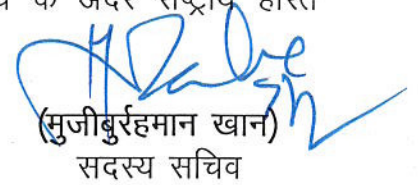 के अंदर राष्ट्रीय हरित
(मुजीबुर्रहमान खान)
सदस्य सचिव